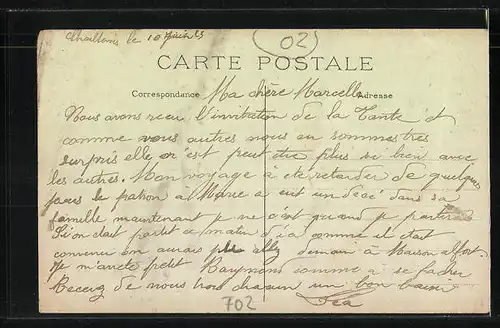 le 10 juin
(02)
CARTE POSTALE
Correspondance Adresse
Ma chère Marcelle
Nous avons recu l'invitation de la Tante et
comme vous autres nous en sommes tres
surpris elle n'est peut etre plus si bien avec
les autres. Mon voyage a ete retarder de quelque
jours le patron a Marce a eut un decé dans sa
famille maintenant je ne c'est quand je partirais
Si on etait partit ce matin d'ici comme il etait
convenu on aurais pu aller demain à Maison alfort
Je m'arrete petit Raymond comme a se facher
Recevez de nous trois chacun un bon baiser
Léa
702